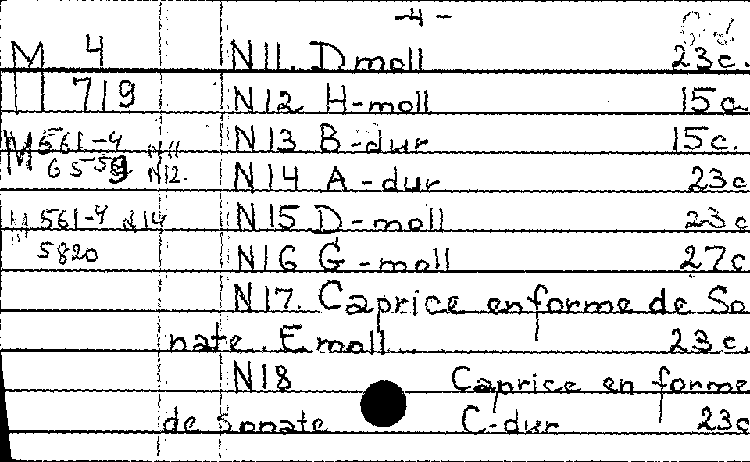 -4-
M 4 N11. D moll 23c.
H 719 N12 H-moll 15c
M 561-4 N11 N13 B-dur 15c.
6559 N12. N14 A-dur 23c
M 561-4 N14 N15 D-moll 23c
5820 N16 G-moll 27c
N17. Caprice en forme de So
nate. E moll 23c.
N18 Caprice en forme
de Sonate C-dur 23c